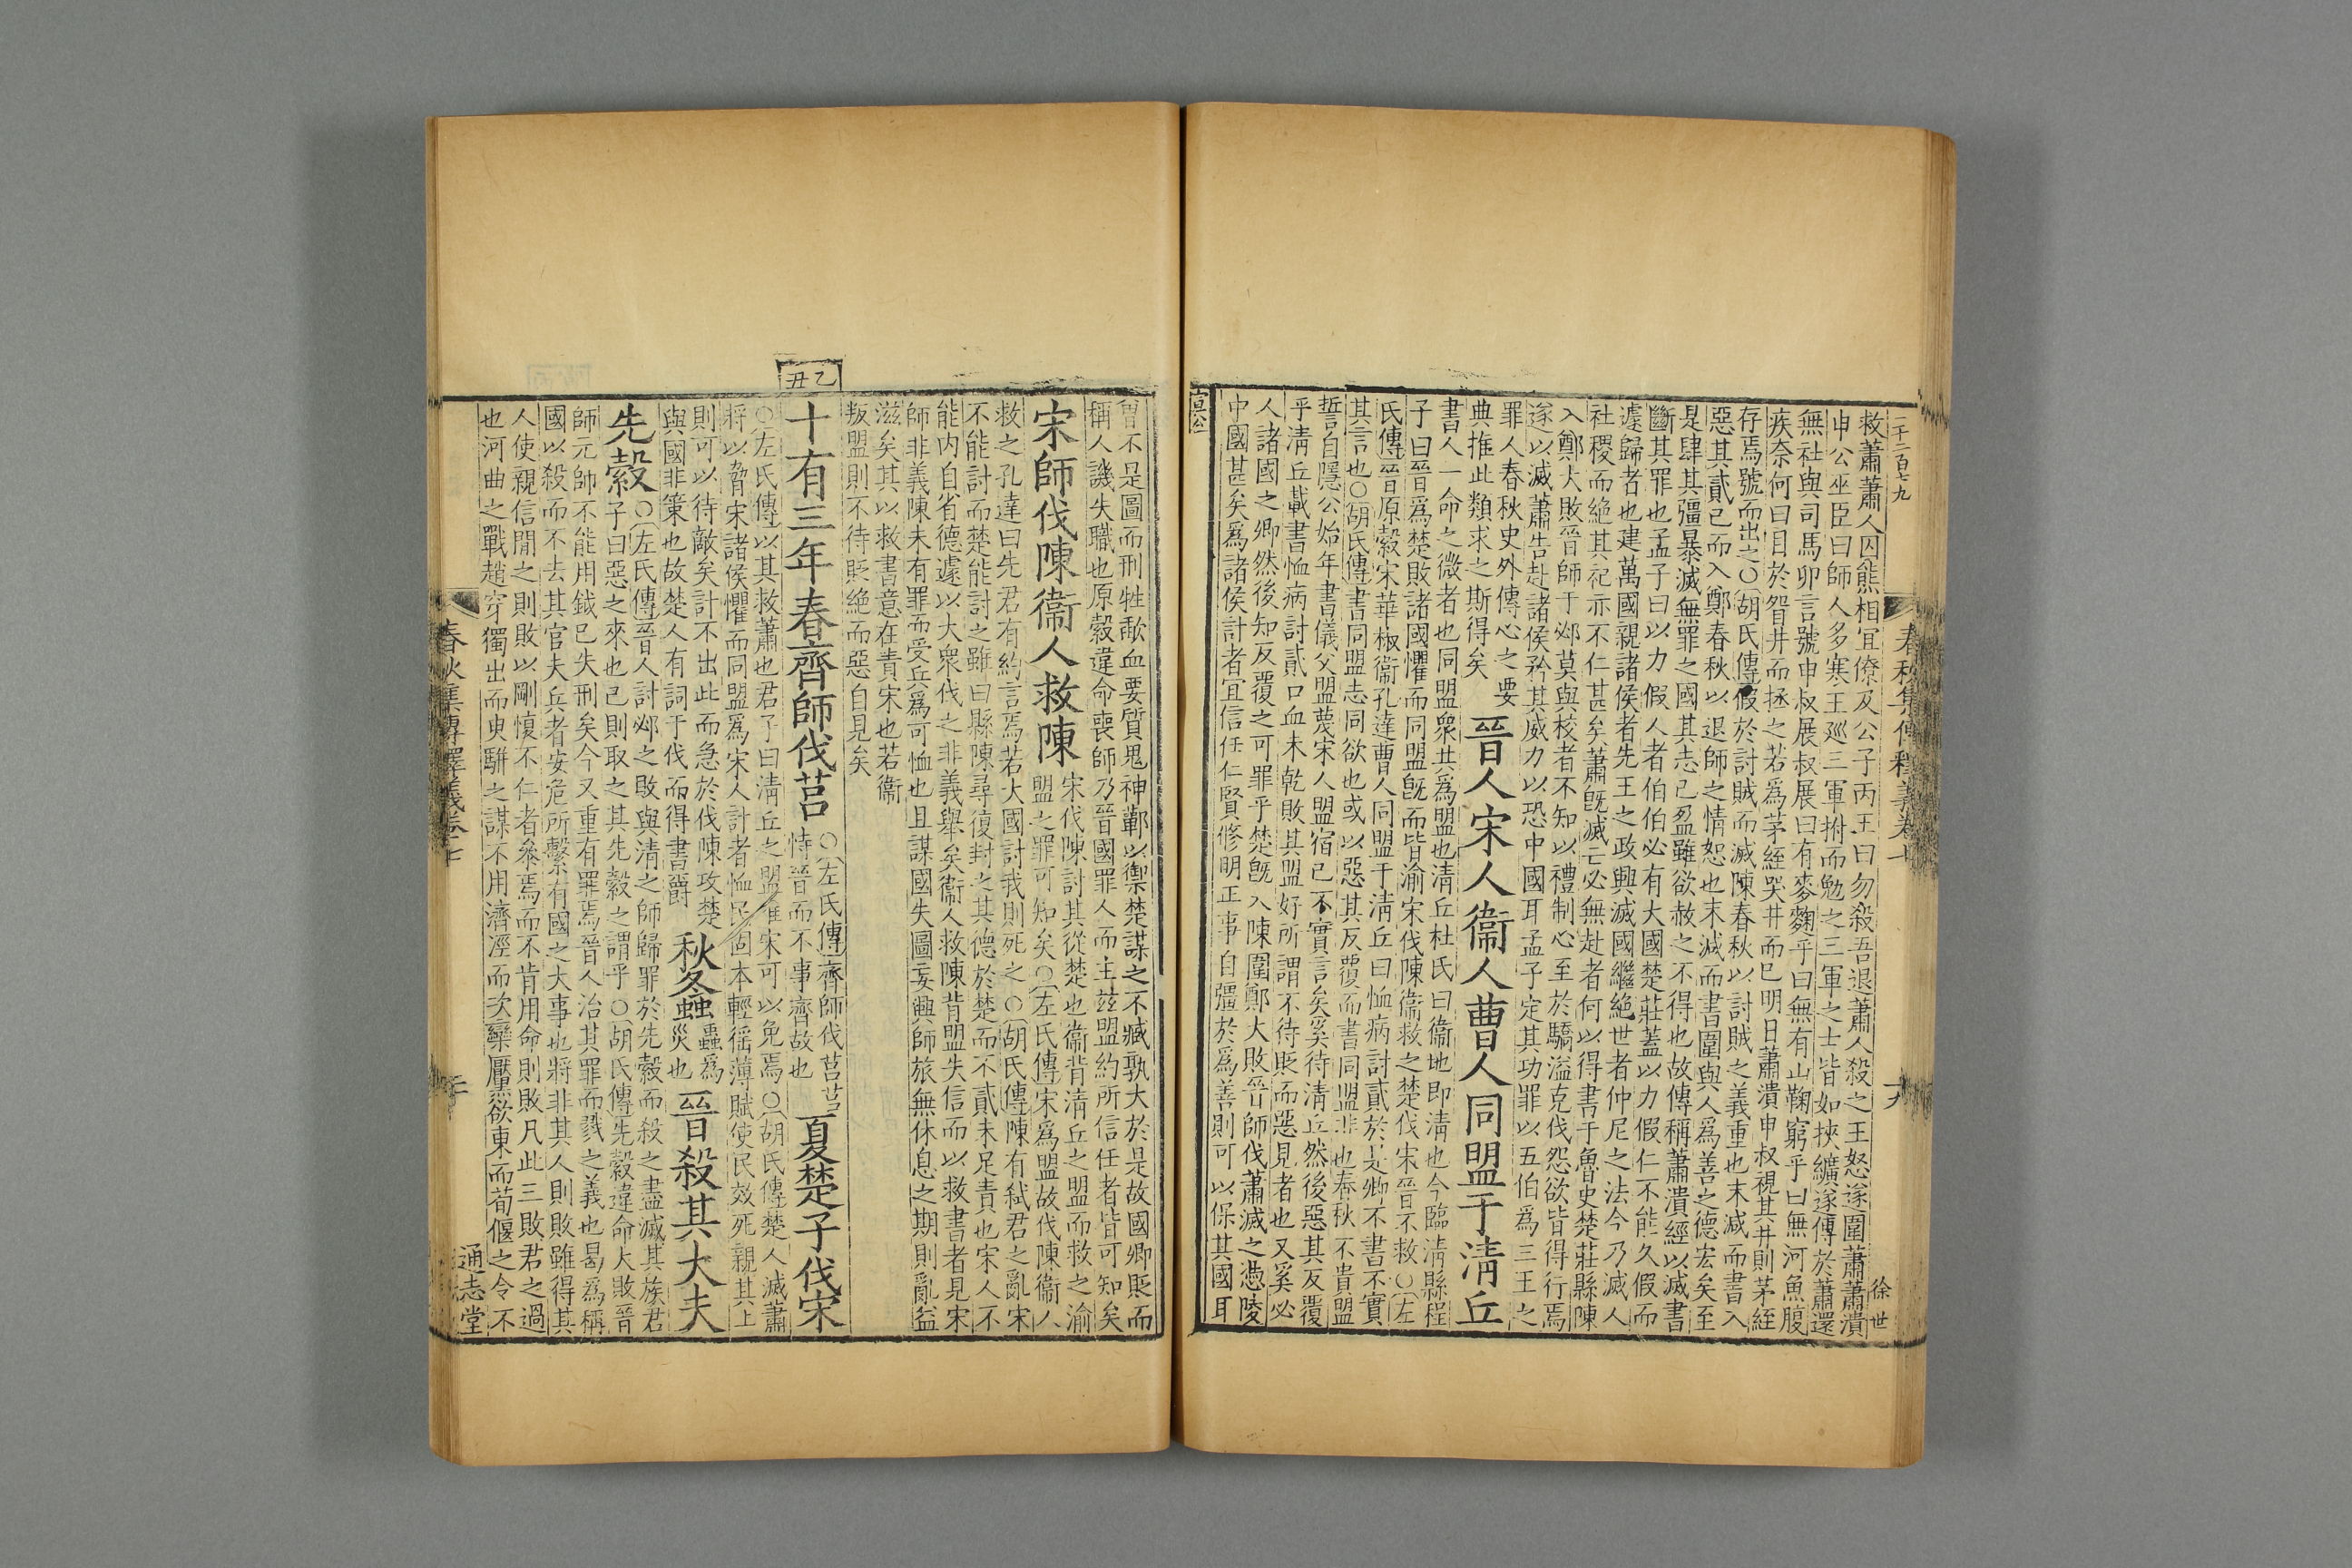 二千二百七九
春秋集傳釋義卷十七
十九
徐世
救蕭蕭人囚熊相宜僚及公子丙王曰勿殺吾退蕭人殺之王怒遂圍蕭蕭潰
申公巫臣曰師人多寒王巡三軍拊而勉之三軍之士皆如挾纊遂傅於蕭還
無社與司馬卯言號申叔展叔展曰有麥麴乎曰無有山鞠窮乎曰無河魚腹
疾奈何曰目於眢井而拯之若爲茅絰哭井而已明日蕭潰申叔視其井則茅絰
存焉號而出之〇胡氏傳假於討賊而滅陳春秋以討賊之義重也末滅而書入
惡其貳已而入鄭春秋以退師之情恕也末滅而書圍與人爲善之德宏矣至
是肆其彊暴滅無罪之國其志已盈雖欲赦之不得也故傳稱蕭潰經以滅書
斷其罪也孟子曰以力假人者伯伯必有大國楚莊蓋以力假仁不能久假而
遽歸者也建萬國親諸侯者先王之政興滅國繼絶世者仲尼之法今乃滅人
社稷而絶其祀亦不仁甚矣蕭旣滅亡必無赴者何以得書于魯史楚莊縣陳
入鄭大敗晉師于邲莫與校者不知以禮制心至於驕溢克伐怨欲皆得行焉
遂以滅蕭告赴諸侯矜其威力以恐中國耳孟子定其功罪以五伯爲三王之
罪人春秋史外傳心之要
典推此類求之斯得矣
晉人宋人衞人曹人同盟于淸丘
書人一命之微者也同盟衆共爲盟也淸丘杜氏曰衞地即淸也今臨淸縣程
子曰晉爲楚敗諸國懼而同盟旣而皆渝宋伐陳衞救之楚伐宋晉不救〇左
氏傳晉原縠宋華椒衞孔達曹人同盟于淸丘曰恤病討貳於是卿不書不實
其言也〇胡氏傳書同盟志同欲也或以惡其反覆而書同盟非也春秋不貴盟
誓自隱公始年書儀父盟蔑宋人盟宿已不實言矣奚待淸丘然後惡其反覆
乎淸丘載書恤病討貳口血未乾敗其盟好所謂不待貶而惡見者也又奚必
人諸國之卿然後知反覆之可罪乎楚旣入陳圍鄭大敗晉師伐蕭滅之憑陵
中國甚矣爲諸侯計者宜信任仁賢修明正事自彊於爲善則可以保其國耳
宣公
曾不是圖而刑牲歃血要質鬼神蘄以禦楚謀之不臧孰大於是故國卿貶而
稱人譏失職也原縠違命喪師乃晉國罪人而主兹盟約所信任者皆可知矣
宋師伐陳衞人救陳
宋伐陳討其從楚也衞背淸丘之盟而救之渝
盟之罪可知矣〇左氏傳宋爲盟故伐陳衞人
救之孔達曰先君有約言焉若大國討我則死之〇胡氏傳陳有弑君之亂宋
不能討而楚能討之雖曰縣陳尋復封之其德於楚而不貳未足責也宋人不
能内自省德遽以大衆伐之非義舉矣衞人救陳背盟失信而以救書者見宋
師非義陳未有罪而受兵爲可恤也且謀國失圖妄興師旅無休息之期則亂益
滋矣其以救書意在責宋也若衞
叛盟則不待貶絶而惡自見矣
乙丑
十有三年春齊師伐莒
〇左氏傳齊師伐莒莒
恃晉而不事齊故也
夏楚子伐宋
〇左氏傳以其救蕭也君子曰淸丘之盟惟宋可以免焉〇胡氏傳楚人滅蕭
將以脅宋諸侯懼而同盟爲宋人計者恤民固本輕徭薄賦使民效死親其上
則可以待敵矣計不出此而急於伐陳攻楚
與國非策也故楚人有詞于伐而得書爵
秋螽
蟲爲
災也
晉殺其大夫
先縠
〇左氏傳晉人討邲之敗與淸之師歸罪於先縠而殺之盡滅其族君
子曰惡之來也己則取之其先縠之謂乎〇胡氏傳先縠違命大敗晉
師元帥不能用鉞已失刑矣今又重有罪焉晉人治其罪而戮之義也曷爲稱
國以殺而不去其官夫兵者安危所繫有國之大事也將非其人則敗雖得其
人使親信閒之則敗以剛愎不仁者參焉而不肯用命則敗凡此三敗君之過
也河曲之戰趙穿獨出而臾騈之謀不用濟涇而次欒黶欲東而荀偃之令不
春秋集傳釋義卷十七
二十
通志堂